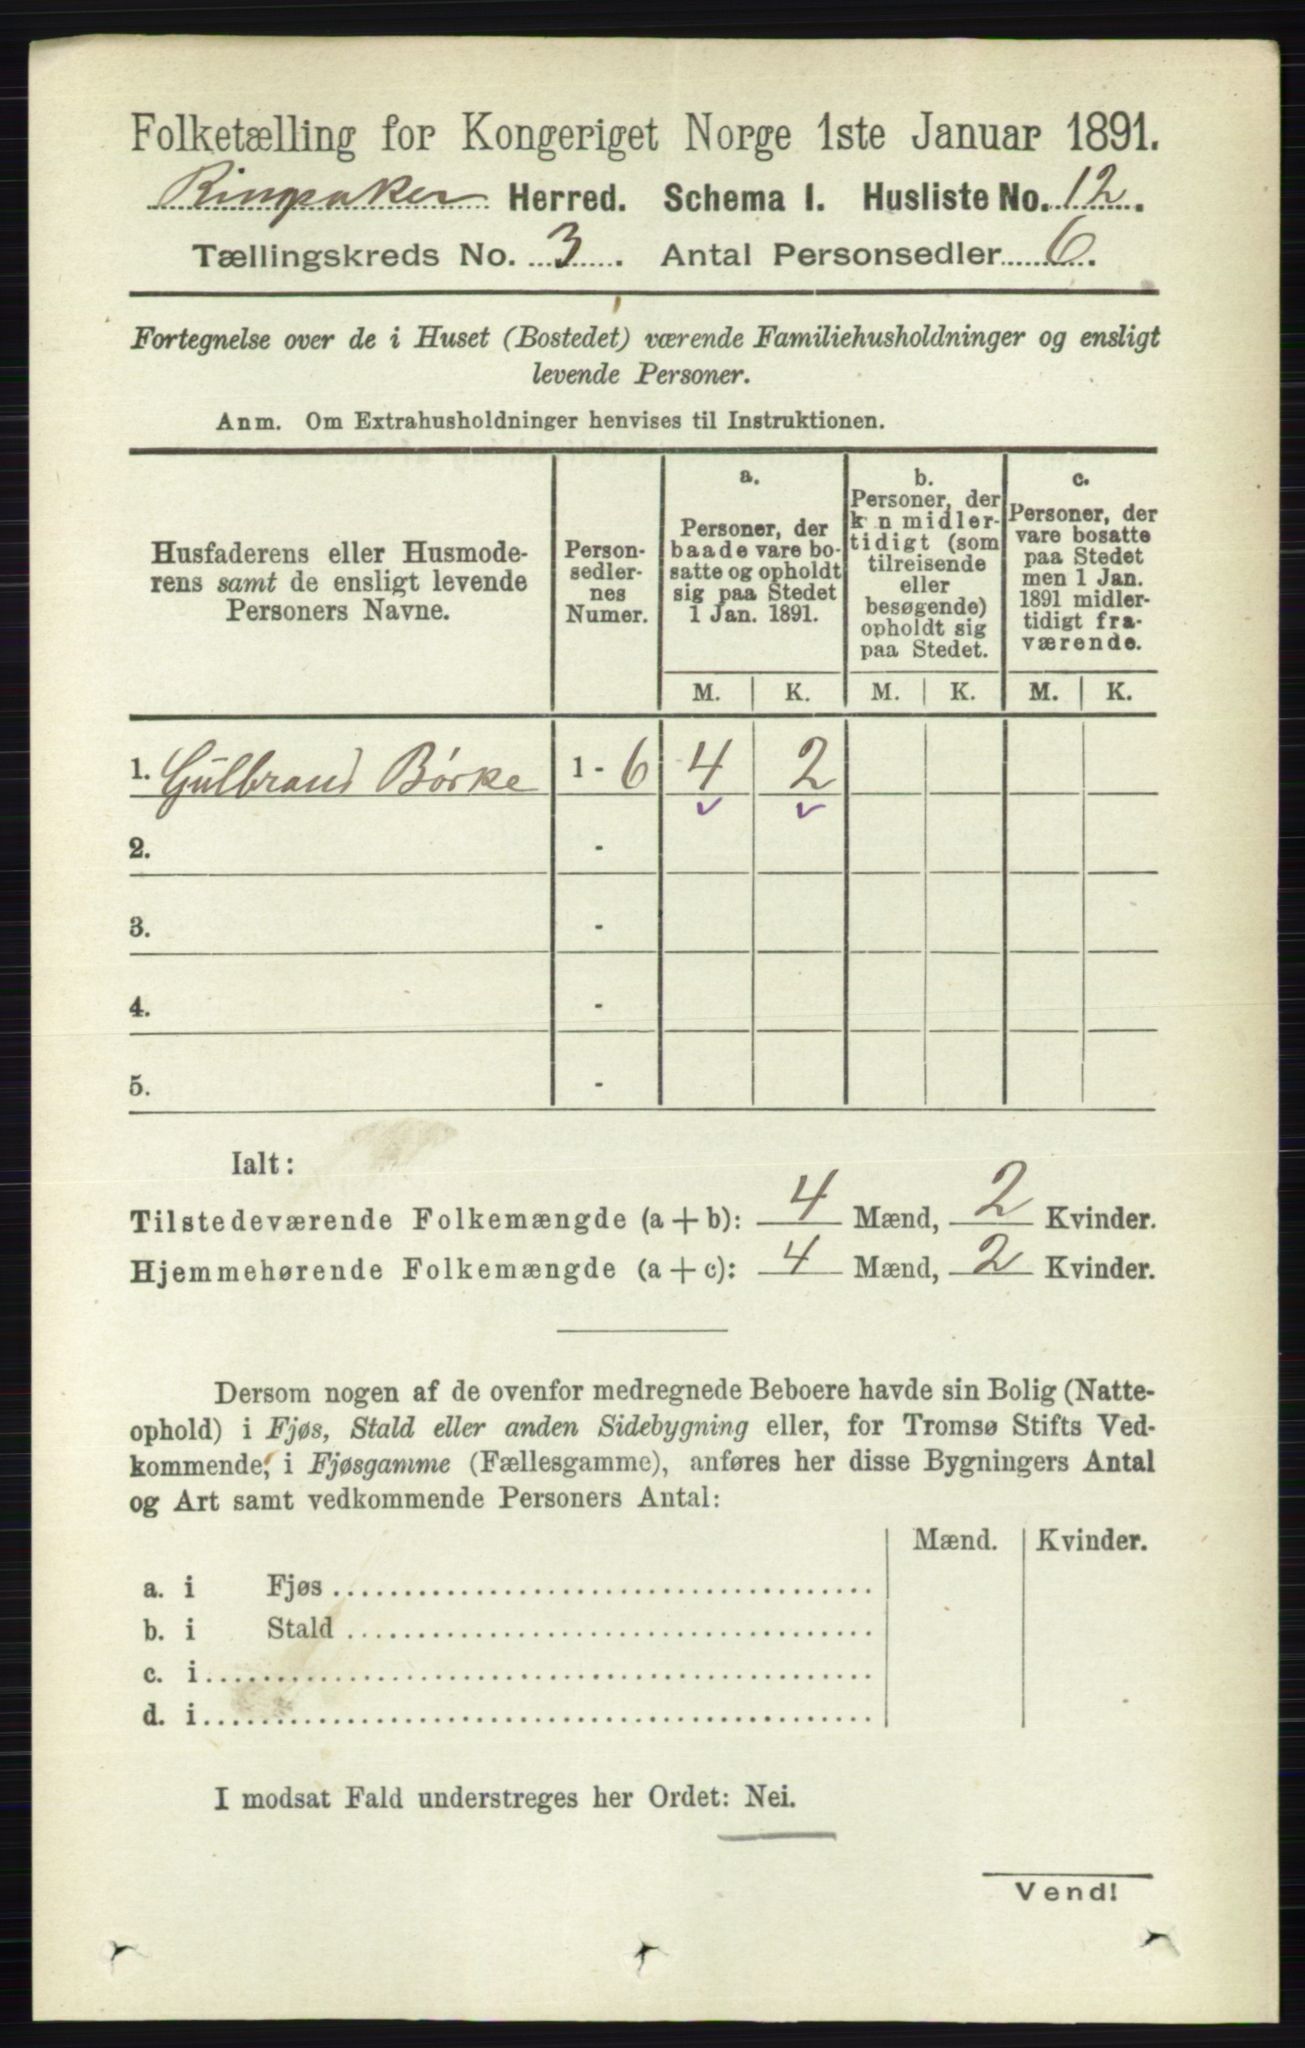 Folketælling for Kongeriget Norge 1ste Januar 1891.
Ringsaker Herred. Schema I. Husliste No. 12.
Tællingskreds No. 3. Antal Personsedler 6.
Fortegnelse over de i Huset (Bostedet) værende Familiehusholdninger og ensligt
levende Personer.
Anm. Om Extrahusholdninger henvises til Instruktionen.
Husfaderens eller Husmode-
rens samt de ensligt levende
Personers Navne.
Person-
sedler-
nes
Numer.
a.
Personer, der
baade vare bo-
satte og opholdt
sig paa Stedet
1 Jan. 1891.
b.
Personer, der
k n midler-
tidigt (som
tilreisende
eller
besøgende)
opholdt sig
paa Stedet.
c.
Personer, der
vare bosatte
paa Stedet
men 1 Jan.
1891 midler-
tidigt fra-
værende.
M. K. M. K. M. K.
1. Gulbrand Børke 1 - 6 4 2
2. -
3. -
4. -
5. -
Ialt:
Tilstedeværende Folkemængde (a + b): 4 Mænd, 2 Kvinder.
Hjemmehørende Folkemængde (a + c): 4 Mænd, 2 Kvinder.
Dersom nogen af de ovenfor medregnede Beboere havde sin Bolig (Natte-
ophold) i Fjøs, Stald eller anden Sidebygning eller, for Tromsø Stifts Ved-
kommende, i Fjøsgamme (Fællesgamme), anføres her disse Bygningers Antal
og Art samt vedkommende Personers Antal:
Mænd. Kvinder.
a. i Fjøs
b. i Stald
c. i
d. i
I modsat Fald understreges her Ordet: Nei.
Vend!